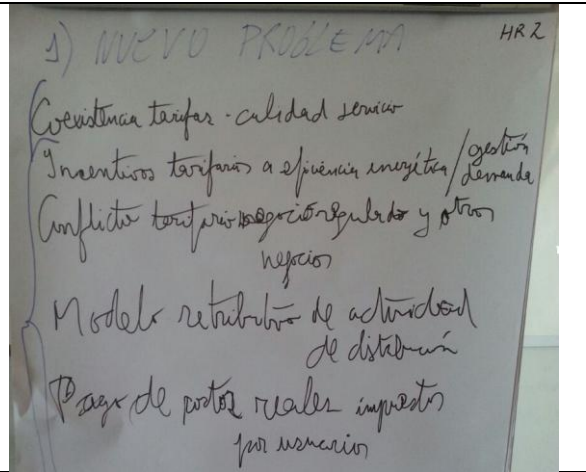 HR2
1) NUEVO PROBLEMA
Coexistencia tarifas - calidad servicio
Incentivos tarifarios a eficiencia energética / gestión
demanda
Conflicto tarifario negocio regulado y otros
negocios
Modelo retributivo de actividad
de distribución
Pago de costos reales impuestos
por usuarios